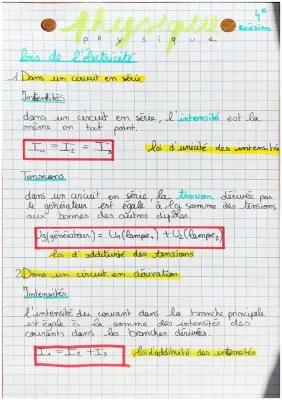 physique
4e
Révision
physique
lois de l'électricité
1. Dans un circuit en série
Intensités
dans un circuit en série, l'intensité est la
même en tout point.
I1 = I2 = I3
loi d'unicité des intensités
Tensions
dans un circuit en série la tension dérivée par
le générateur est égale à la somme des tensions
aux bornes des autres dipôles.
UG(générateur) = U1(lampe1) + U2(lampe2)
loi d'additivité des tensions
2. Dans un circuit en dérivation
Intensités
l'intensité du courant dans la branche principale
est égale à la somme des intensités des
courants dans les branches dérivées.
I1 = I2 + I3
loi d'additivité des intensités